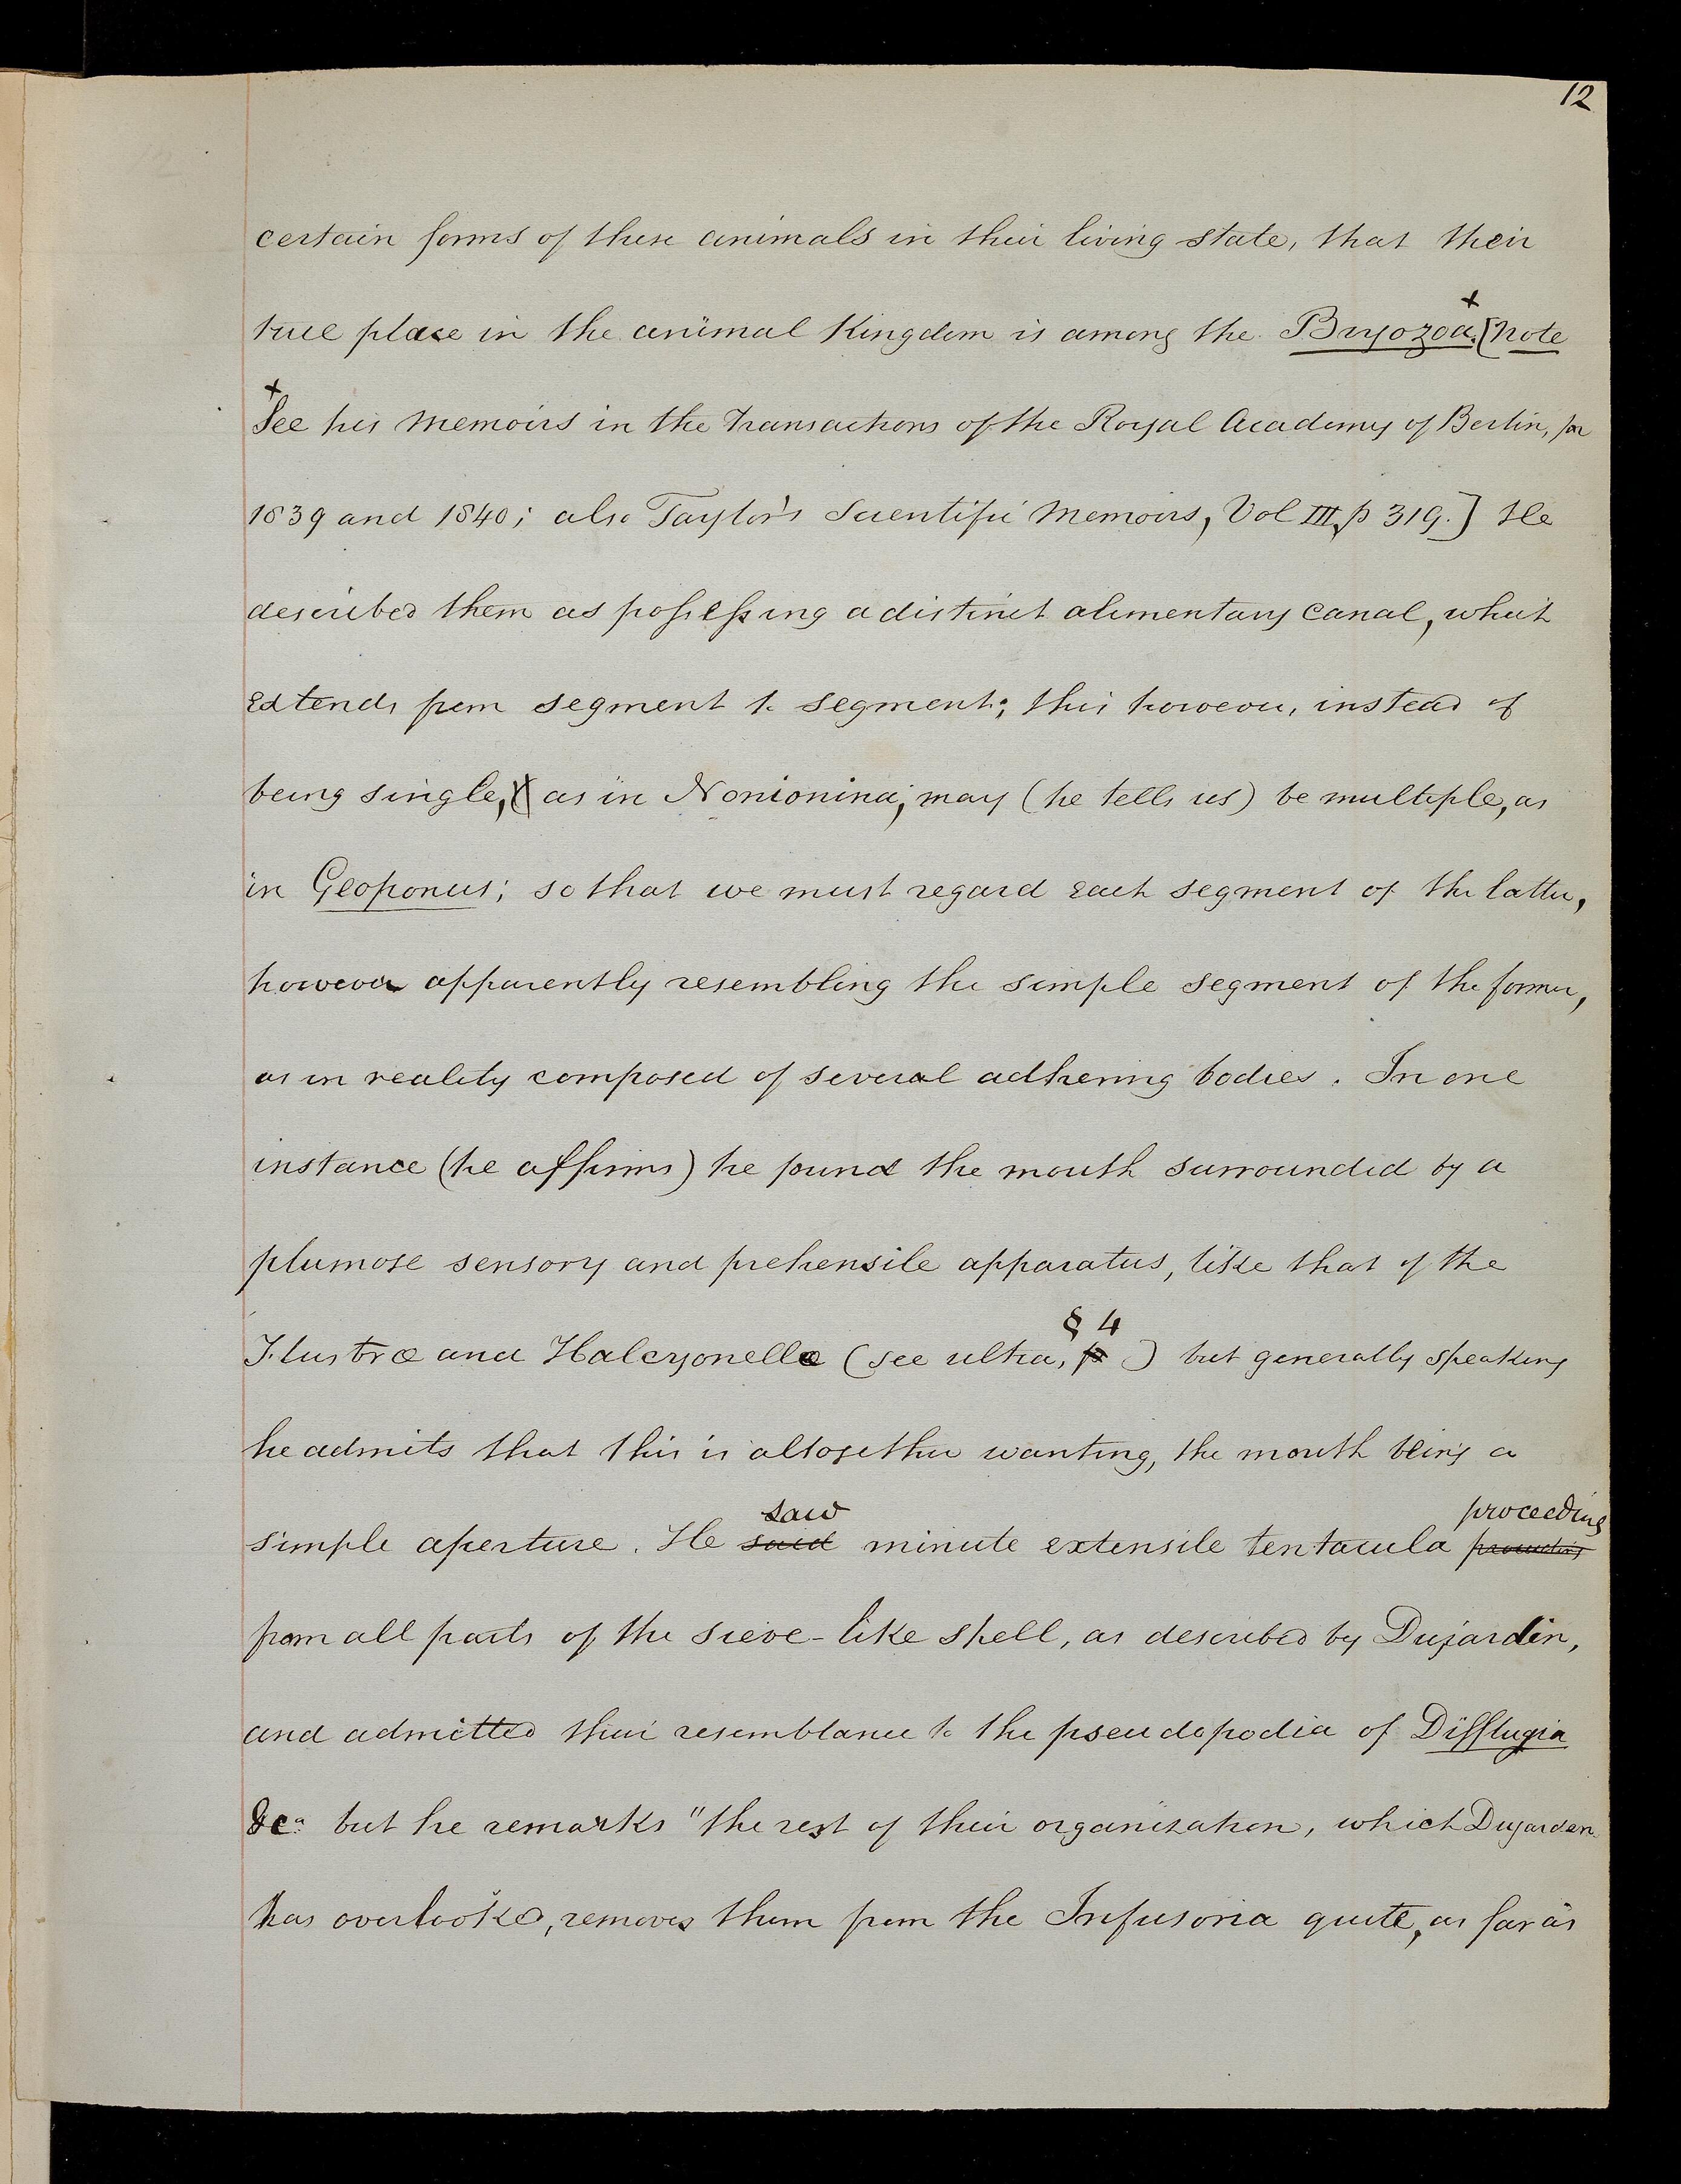 12
certain forms of these animals in their living state, that their
true place in the animal Kingdom is among the Bryozoa.+ [note
+ See his memoirs in the Transactions of the Royal Academy of Berlin, for
1839 and 1840; also Taylor's Scientific Memoirs, Vol III, p 319.] He
described them as possessing a distinct alimentary canal, which
extends from segment to segment; this however, instead of
being single, as in Nonionina, may (he tells us) be multiple, as
in Geoponus; so that we must regard each segment of the latter,
however apparently resembling the simple segment of the former,
as in reality composed of several adhering bodies. In one
instance (he affirms) he found the mouth surrounded by a
plumose sensory and prehensile apparatus, like that of the
§ 4
Flustræ and Halcyonellæ (see ultra, p ) but generally speaking
he admits that this is altogether wanting, the mouth being a
saw proceeding
simple aperture. He said minute extensile tentacula proceeding
from all parts of the sieve-like shell, as described by Dujardin,
and admitted their resemblance to the pseudopodia of Difflugia
&ca but he remarks "the rest of their organization, which Dujarden
has overlooked, removes them from the Infusoria quite, as far as